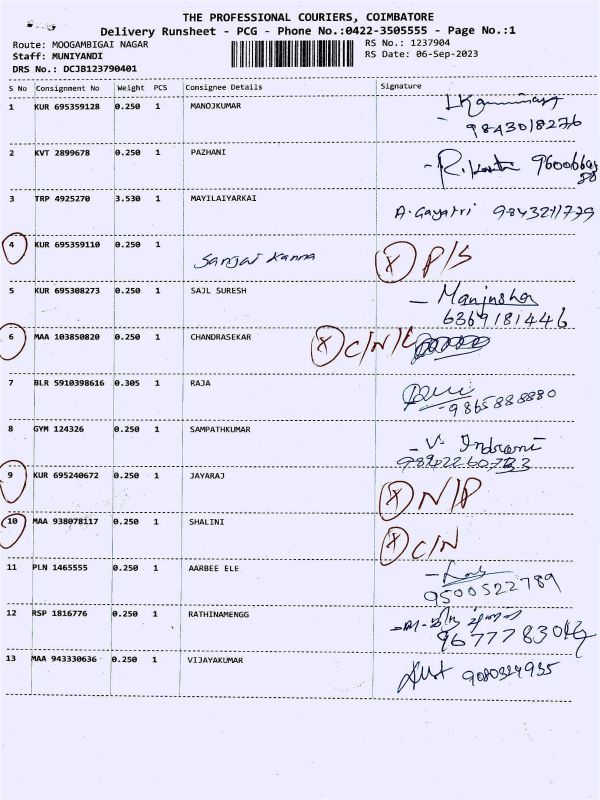 THE PROFESSIONAL COURIERS, COIMBATORE
Delivery Runsheet - PCG - Phone No.:0422-3505555 - Page No.:1
Route: MOOGAMBIGAI NAGAR
RS No.: 1237904
Staff: MUNIYANDI
RS Date: 06-Sep-2023
DRS No.: DCJB123790401
S No Consignment No Weight PCS Consignee Details Signature
1 KUR 695359128 0.250 1 MANOJKUMAR
9843018276
2 KVT 2899678 0.250 1 PAZHANI
3 TRP 4925270 3.530 1 MAYILAIYARKAI A. Gayatri 9843211779
4 KUR 695359110 0.250 1 Sanjai Kanna X P/S
5 KUR 695308273 0.250 1 SAJL SURESH - Manjusha
6369181446
6 MAA 103850820 0.250 1 CHANDRASEKAR X C/N/L
7 BLR 5910398616 0.305 1 RAJA
- 9865888880
8 GYM 124326 0.250 1 SAMPATHKUMAR - V. Indrani
9 KUR 695240672 0.250 1 JAYARAJ X N/P
10 MAA 938078117 0.250 1 SHALINI X C/N
11 PLN 1465555 0.250 1 AARBEE ELE
9500522789
12 RSP 1816776 0.250 1 RATHINAMENGG
13 MAA 943330636 0.250 1 VIJAYAKUMAR 9080324935